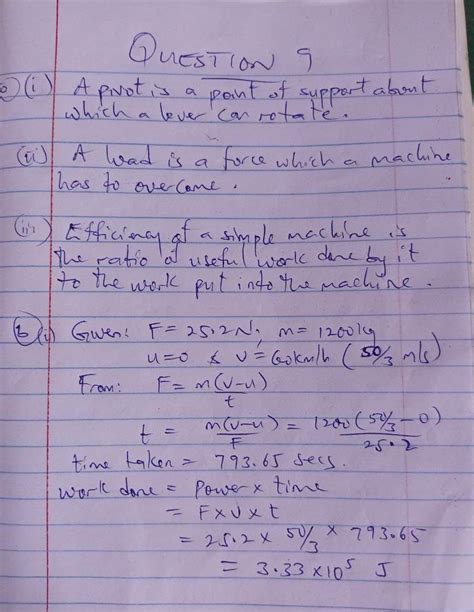 QUESTION 9
a (i) A pivot is a point of support about
which a lever can rotate.
(ii) A load is a force which a machine
has to overcome.
(iii) Efficiency of a simple machine is
the ratio of useful work done by it
to the work put into the machine.
b (i) Given: F = 25.2N, m = 1200kg
u=0 & v = 60km/h (50/3 m/s)
From: F = m(v-u)/t
t = m(v-u)/F = 1200(50/3-0)/25.2
time taken = 793.65 secs.
work done = power x time
= F x V x t
= 25.2 x 50/3 x 793.65
= 3.33 x 10⁵ J